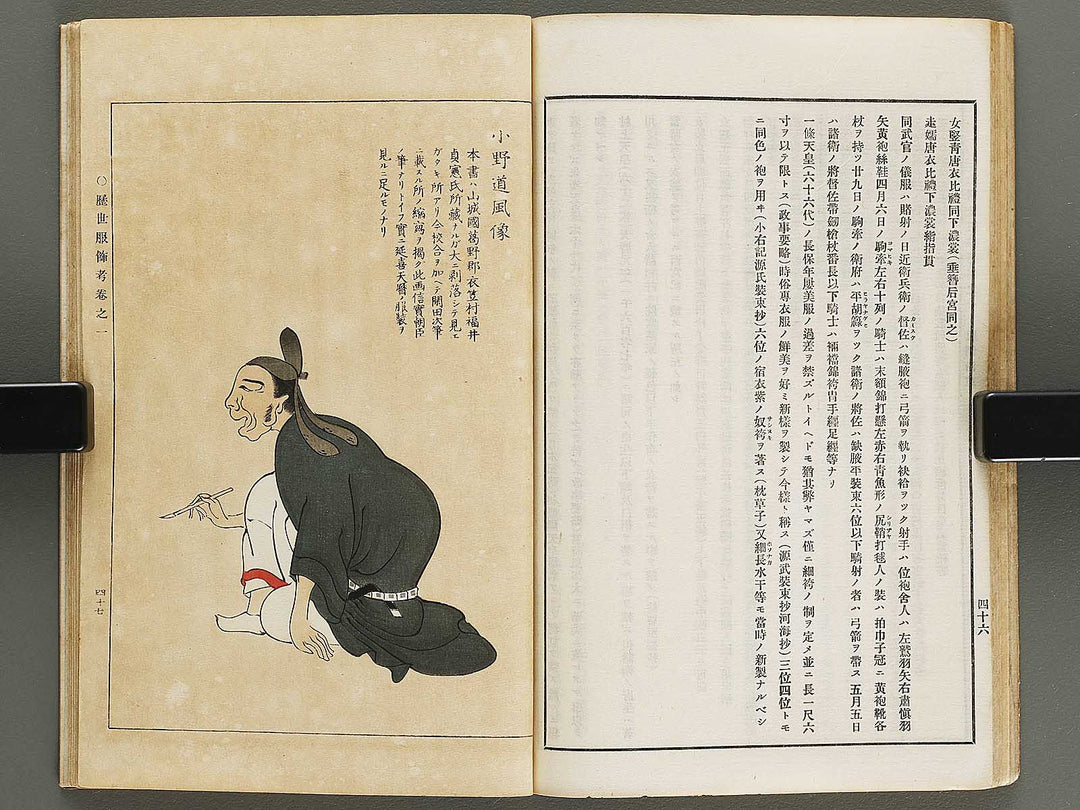 女竪靑唐衣比禮同下濃裳(垂簪后宮同之)
走孺唐衣比禮下濃裳繪指貫
同武官ノ儀服ハ賭射ノ日近衛兵衛ノ督佐ハ縫腋袍ニ弓箭ヲ執リ袂袷ヲツク射手ハ位袍舍人ハ左鷲羽矢右肅愼羽
矢黃袍絲鞋四月六日ノ駒牽左右十列ノ騎士ハ末額錦打懸左赤右靑魚形ノ尻鞘打毬人ノ裝ハ拍巾子冠ニ黃袍靴各
杖ヲ持ツ廿九日ノ駒牽ノ衛府ハ平胡籙ヲツク諸衛ノ將佐ハ缺腋平裝束六位以下騎射ノ者ハ弓箭ヲ帶ス五月五日
ハ諸衛ノ將督佐帶劒槍杖番長以下騎士ハ裲襠錦袴冑手纒足纒等ナリ
一條天皇(六十六代)ノ長保年屢美服ノ過差ヲ禁ズルトイヘドモ猶其弊ヤマズ僅ニ細袴ノ制ヲ定メ並ニ長一尺六
寸ヲ以テ限トス(政事要略)時俗專衣服ノ鮮美ヲ好ミ新樣ヲ製シテ今樣ト稱ス(源武裝束抄河海抄)三位四位トモ
ニ同色ノ袍ヲ用ヰ(小右記源氏裝束抄)六位ノ宿衣紫ノ奴袴ヲ著ス(枕草子)又細長水干等モ當時ノ新製ナルベシ
四十六
小野道風像
本書ハ山城國葛野郡衣笠村福井
貞憲氏所藏ナルガ大ニ剥落シテ見エ
ガタキ所アリ今校合ヲ加ヘテ閑田次筆
ニ載スル所ノ縮寫ヲ揭グ此画信實朝臣
ノ筆ナリトイフ實ニ延喜天曆ノ服裝ヲ
見ルニ足ルモノナリ
〇歷世服飾考卷之一
四十七